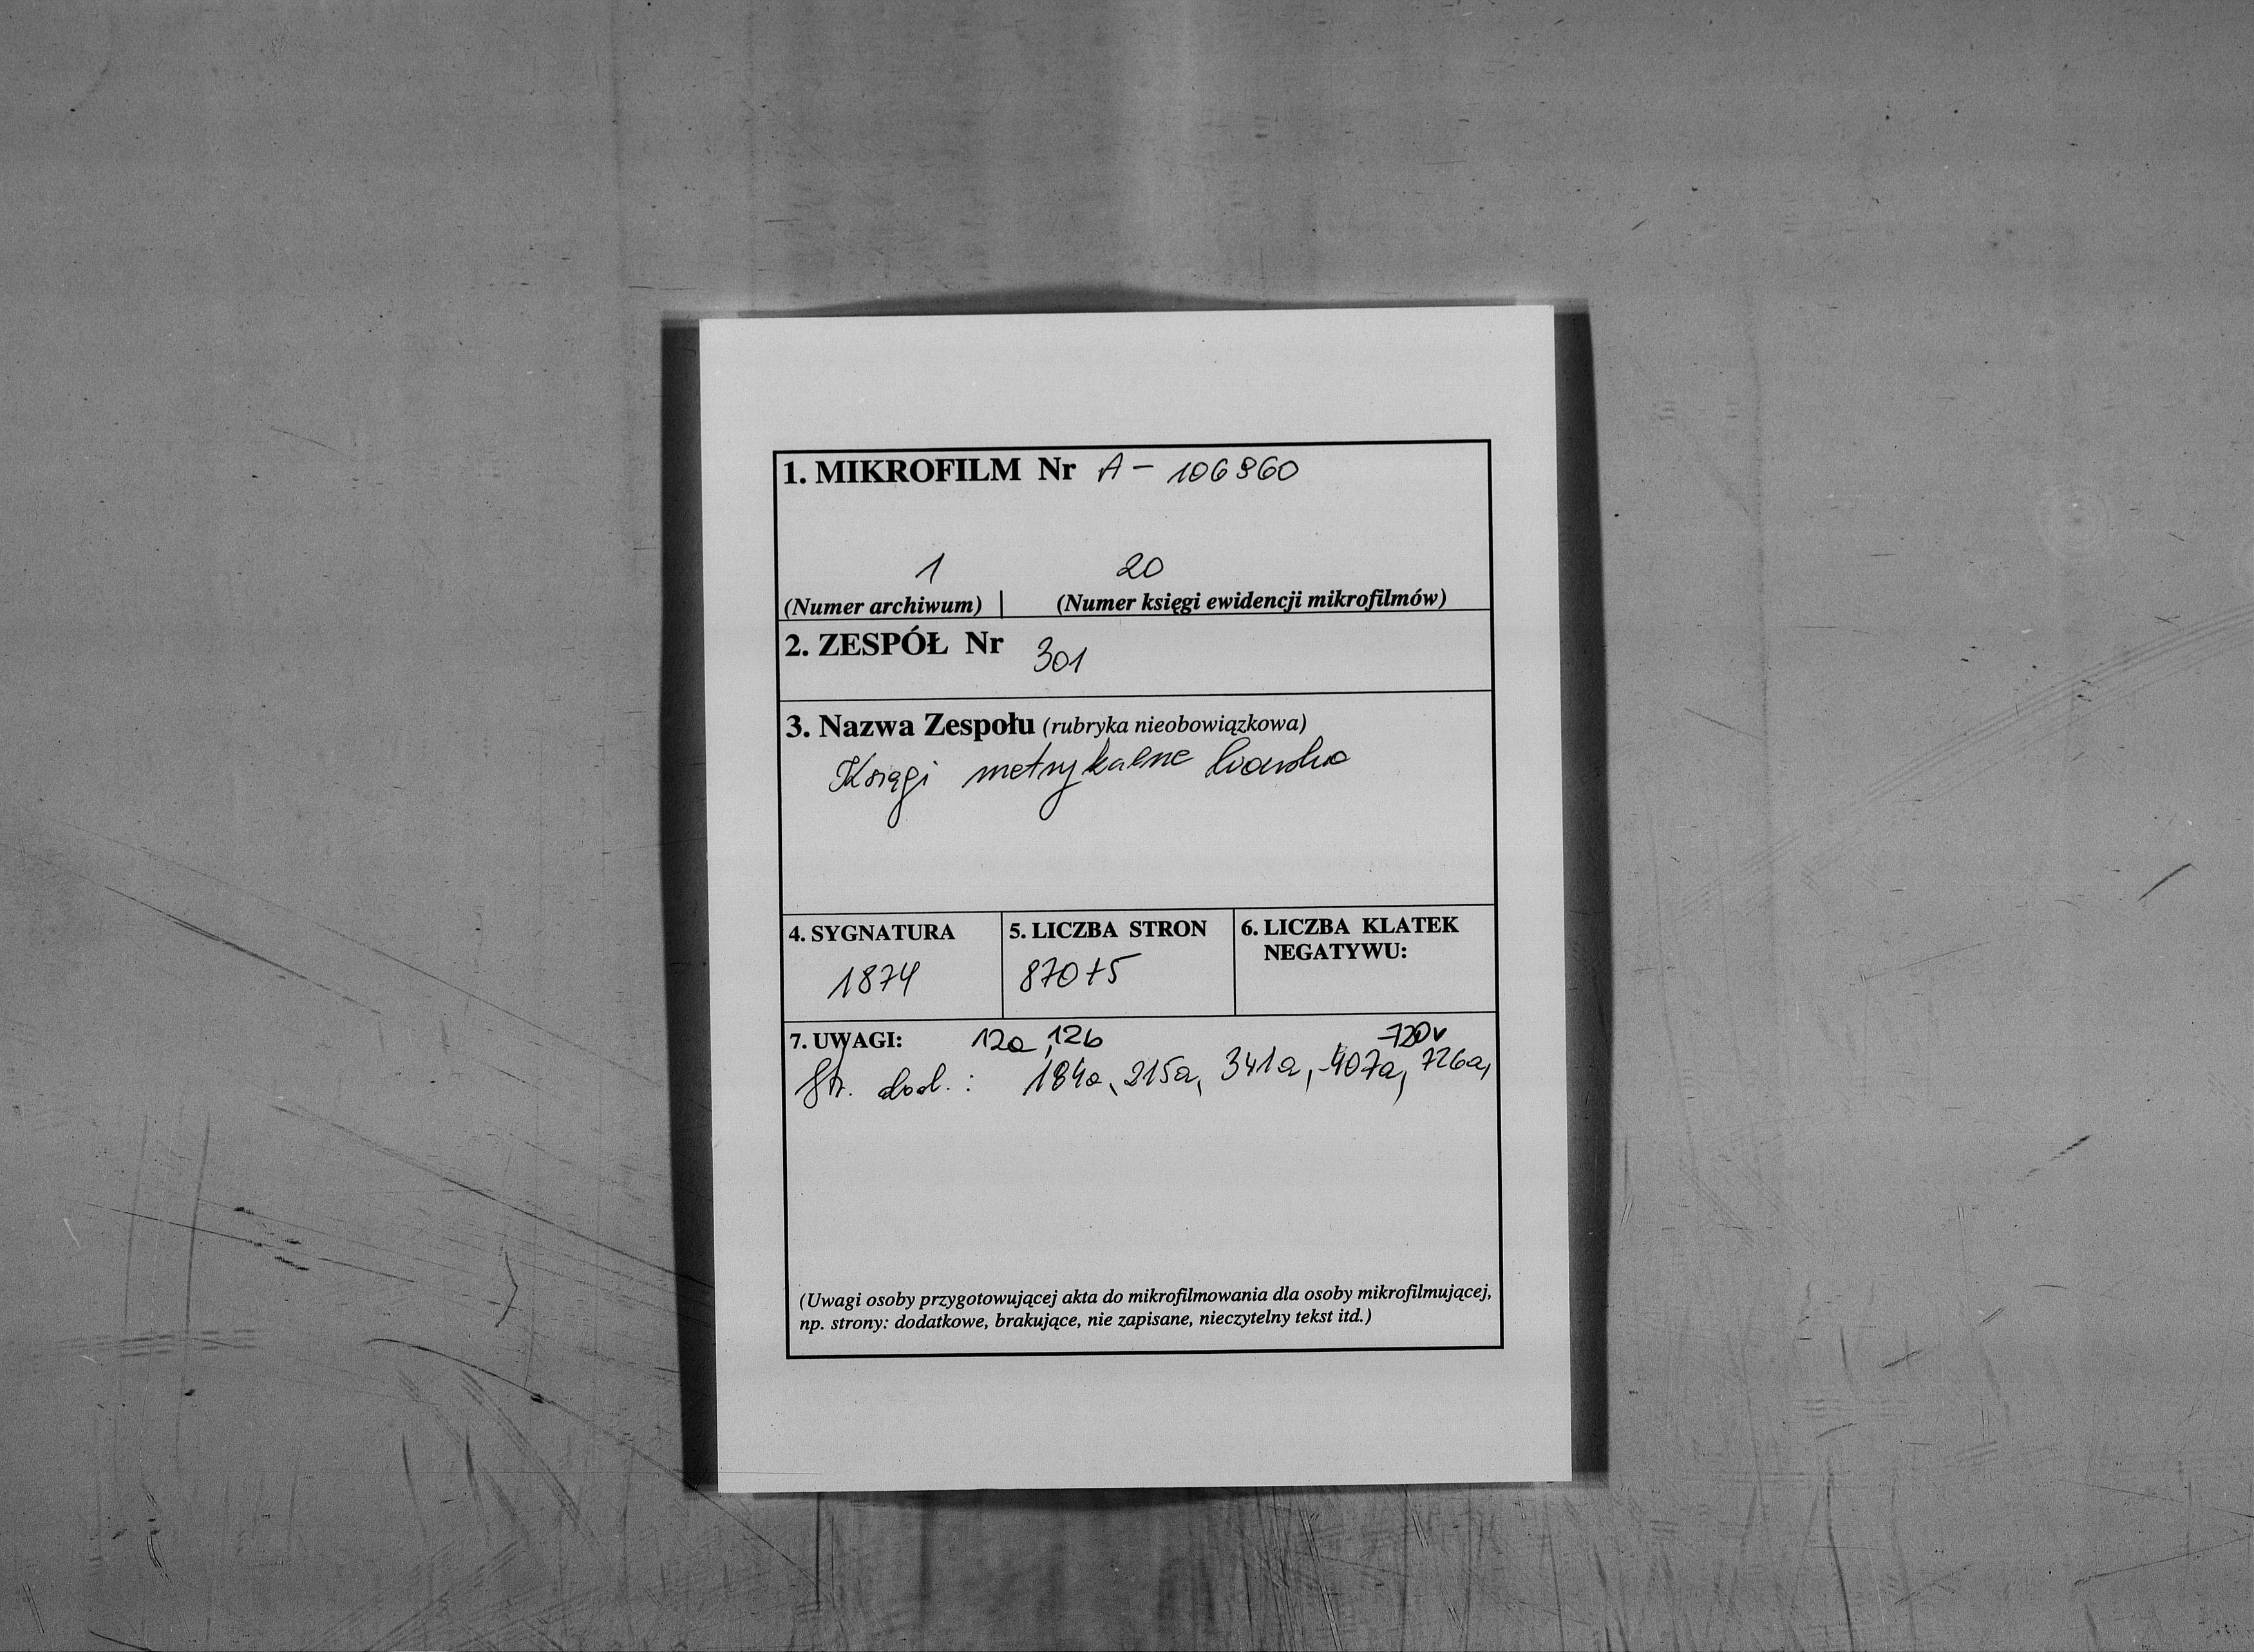 1. MIKROFILM Nr A - 106960
1 20
(Numer archiwum) | (Numer księgi ewidencji mikrofilmów)
2. ZESPÓŁ Nr 301
3. Nazwa Zespołu (rubryka nieobowiązkowa)
Księgi metrykalne
4. SYGNATURA
1874
5. LICZBA STRON
870+5
6. LICZBA KLATEK
NEGATYWU:
7. UWAGI: 12a, 12b 720v
Str. dod.: 184a, 215a, 341a, 407a, 726a,
(Uwagi osoby przygotowującej akta do mikrofilmowania dla osoby mikrofilmującej,
np. strony: dodatkowe, brakujące, nie zapisane, nieczytelny tekst itd.)